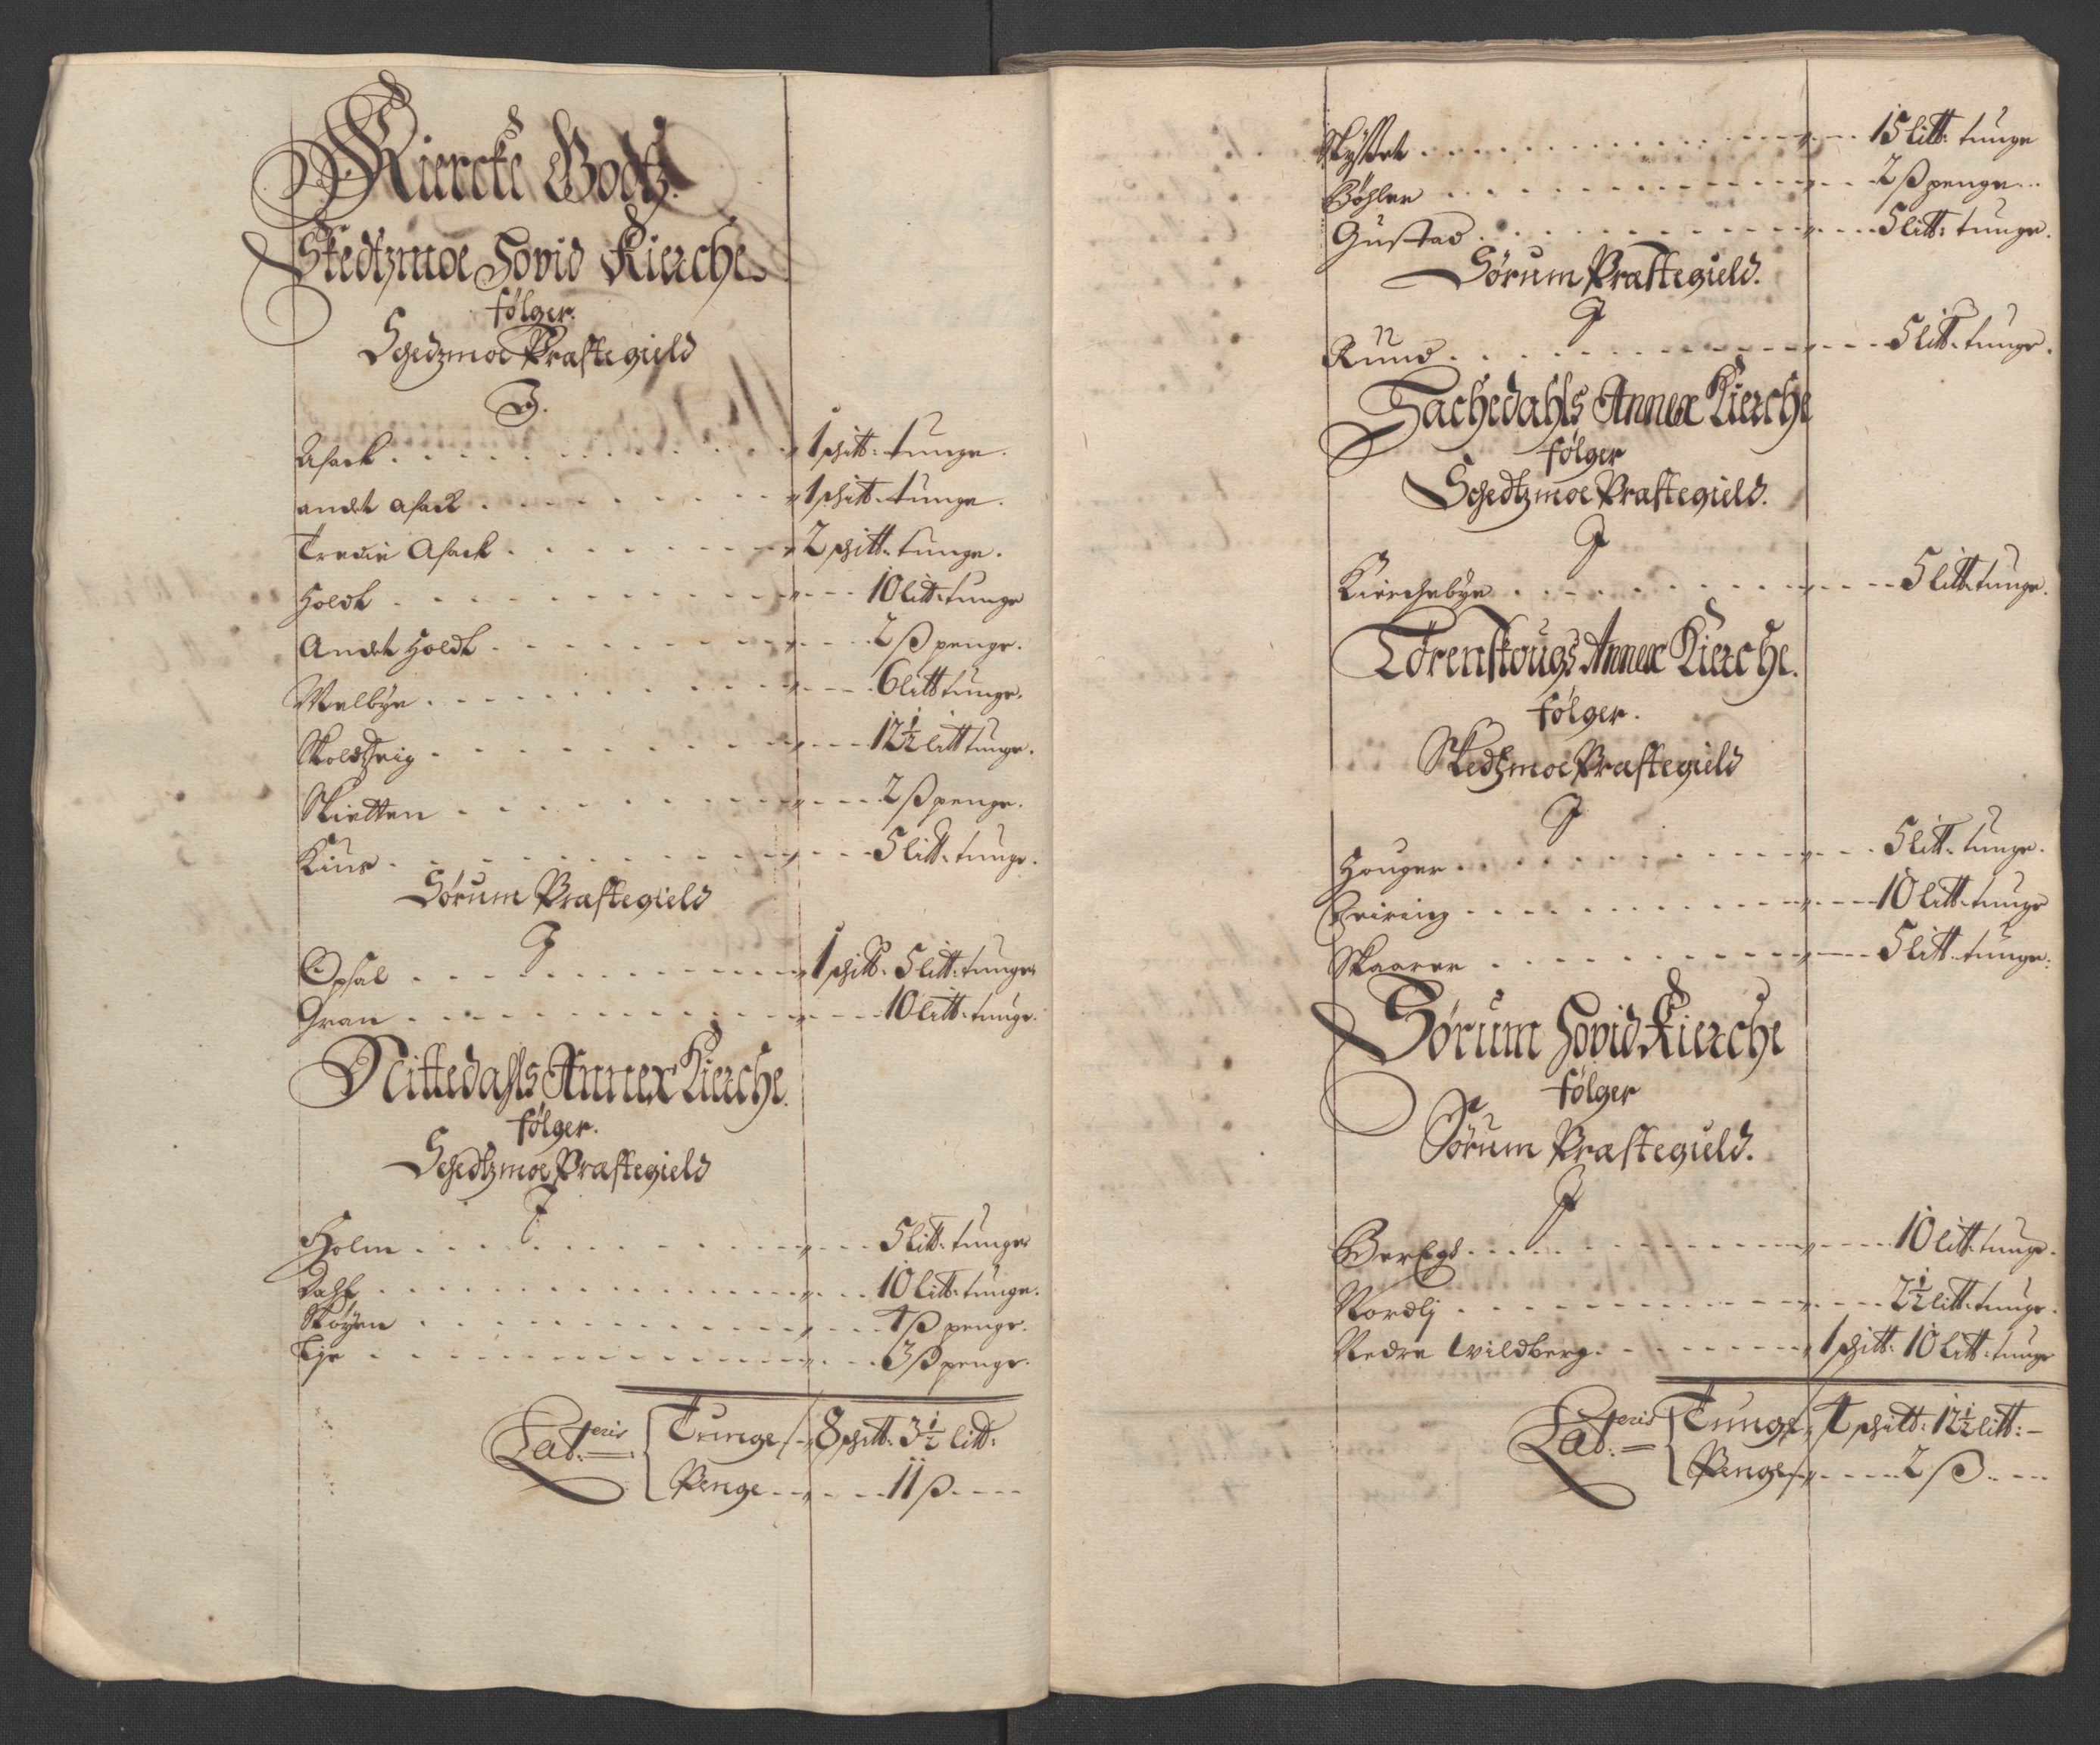 Kiercke Godtz.
Skedtzmoe Hovid Kierche
følger.
Schedzmoe Præstegield
J.
Asack . . . . 1 schitt: tunge.
andet asack . . . . 1 schitt: tunge.
Tredie Asack . . . . 2 schitt: tunge.
Holdt . . . . 10 litt: tunge
Andet Holdt . . . . 2 ß penge.
Melbye . . . . 6 litt tunge.
Skoldtzvig . . . . 12½ litt tunge.
Skietten . . . . 2 ß penge.
Kius . . . . 5 litt: tunge.
Sørum Præstegield
J
Opsal . . . . 1 schitt: 5 litt: tunge
Gran . . . . 10 litt: tunge.
Nittedahls Annex Kierche.
følger.
Schedtzmoe Præstegield
J
Holm . . . . 5 litt: tunge
Dahl . . . . 10 litt: tunge.
Skøyen . . . . 4 ß penge.
Lye . . . . 3 ß penge.
Lateris Tunge 8 schitt: 3½ litt:
Penge . . . . 11 ß
Skøsset . . . . 15 litt: tunge
Bøhler . . . . 2 ß penge
Gustad . . . . 5 litt: tunge.
Sørum Præstegield.
J
Rund . . . . 5 litt: tunge.
Hachedahls Annex Kierche
følger
Schedtzmoe Præstegield.
J
Kierchebye . . . . 5 litt: tunge.
Lørenskougs Annex Kierche.
følger.
Skedtzmoe Præstegield
J
Houger . . . . 5 litt: tunge.
Feiring . . . . 10 litt: tunge
Skaarer . . . . 5 litt: tunge.
Sørum Hovid Kierche
følger
Sørum Præstegield.
J
Beregd . . . . 10 litt: tunge.
Nordlj . . . . 2½ litt: tunge.
Nedre Wildberg . . . . 1 schitt: 10 litt: tunge
Lateris Tunge 4 schitt: 12½ litt:
Penge . . . . 2 ß